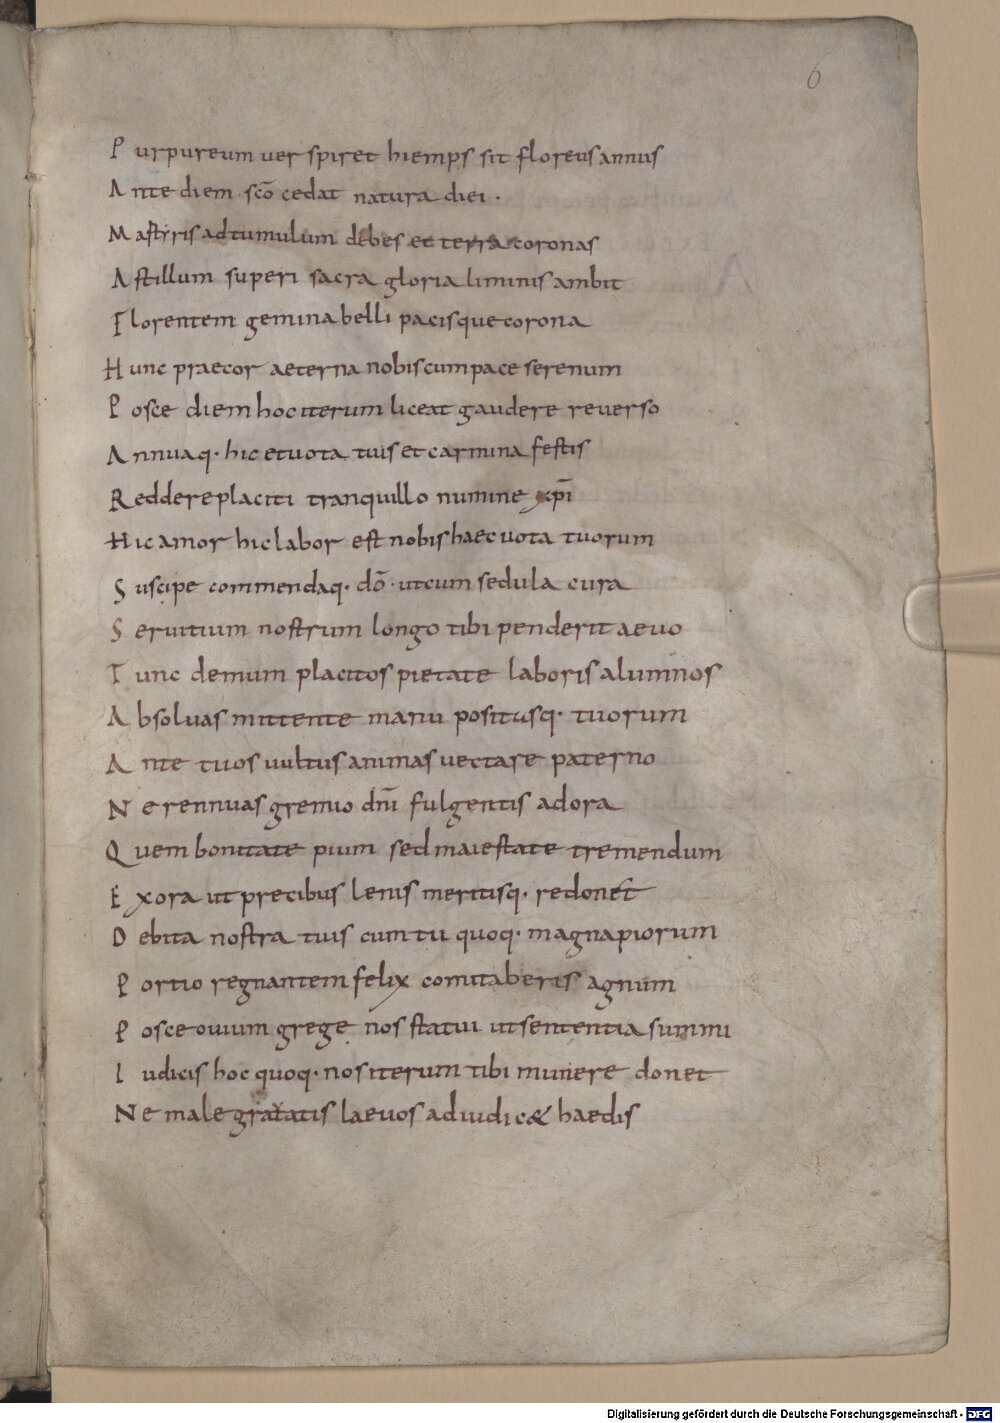 6
Purpureum uer spiret hiemps sit floreus annus
Ante diem scō cedat natura diei .
Mastyris ad tumulum debes et terra coronas
Ast illum superi sacra gloria liminis ambit
Florentem gemina belli pacisque corona
Hunc praecor aeterna nobiscum pace serenum
Posce diem hoc iterum liceat gaudere reuerso
Annuaq· hic et uota tuis et carmina festis
Reddere placiti tranquillo numine xp̄i
Hic amor hic labor est nobis haec uota tuorum
Suscipe commendaq· dō · ut cum sedula cura
Seruitium nostrum longo tibi penderit aeuo
Tunc demum placitos pietate laboris alumnos
Absoluas mittente manu positusq· tuorum
Ante tuos uultus animas uectare paterno
Ne rennuas gremio dn̄i fulgentis adora
Quem bonitate pium sed maiestate tremendum
Exora ut precibus lenis meritisq· redonet
Debita nostra tuis cum tu quoq· magna piorum
Portio regnantem felix comitaberis agnum
Posce ouium grege nos statui ut sententia summi
Iudicis hoc quoq· nos iterum tibi munere donet
Ne male gratatis laeuos adiudic& haedis
Digitalisierung gefördert durch die Deutsche Forschungsgemeinschaft - DFG